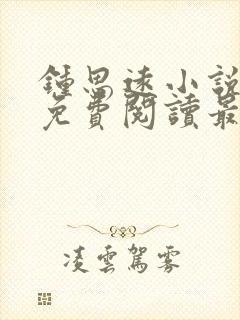 鍾思遠小說
免費閱讀最
凌雲駕霧